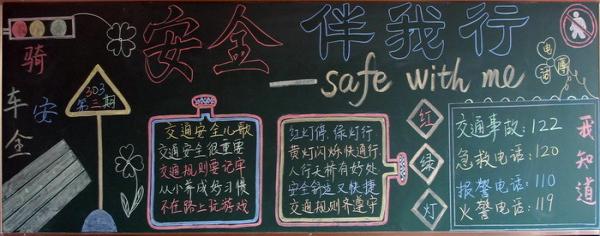 安全 伴我行
safe with me
骑车安全
303
第三期
电话
交通安全儿歌
交通安全很重要
交通规则要记牢
从小养成好习惯
不在路上玩游戏
红灯停 绿灯行
黄灯闪烁快通行
人行天桥有好处
安全舒适又快捷
交通规则齐遵守
红
绿
灯
交通事故：122
急救电话：120
报警电话：110
火警电话：119
我知道